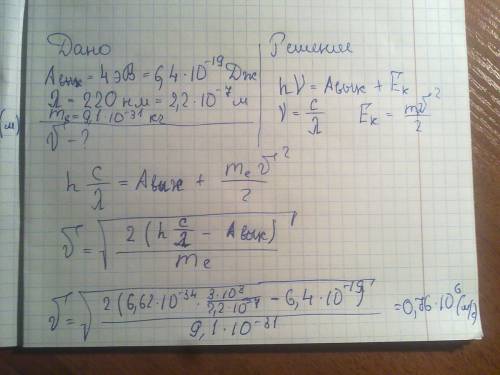 Дано
Aвых = 4 эВ = 6,4·10⁻¹⁹ Дж
λ = 220 нм = 2,2·10⁻⁷ м
mₑ = 9,1·10⁻³¹ кг
υ - ?
Решение
hν = Aвых + Eₖ
ν = c/λ Eₖ = mυ²/2
h c/λ = Aвых + mₑυ²/2
υ = √(2(h c/λ - Aвых)/mₑ)
υ = √(2(6,62·10⁻³⁴ · 3·10⁸/2,2·10⁻⁷ - 6,4·10⁻¹⁹)/9,1·10⁻³¹) = 0,76·10⁶ (м/с)
(м)